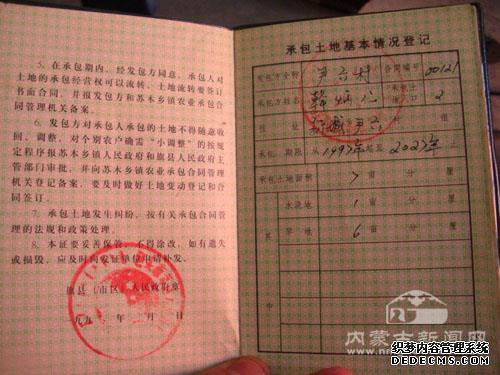 5. 在承包期内，经发包方同意，承包人对
土地的承包经营权可以流转。土地流转要签订
书面合同，并报发包方和苏木乡镇农业承包合
同管理机关备案。
6. 发包方对承包人承包的土地不得随意收
回、调整，对个别农户确需“小调整”的按规
定程序报苏木乡镇人民政府和旗县人民政府主
管部门审批，并向苏木乡镇农业承包合同管理
机关登记备案，要及时做好土地变动登记和合同
签订。
7. 承包土地发生纠纷，按有关承包合同管
理的法规和政策处理。
8. 本证要妥善保管，不得涂改，如有遗失
或损毁，应及时向发证单位申请补发。
旗县（市区）人民政府章
一九九 年 月 日
承包土地基本情况登记
发包方全称
合同编号 00121
承包方姓名 韩
人口 2
住址
承包期限 从1997年起至2027年止
承包土地面积 7 亩 分 厘
其
水浇地 1 亩 分 厘
旱地 6 亩 分 厘
中
内蒙古新闻网
织梦内容管理系统
DEDECMS.COM